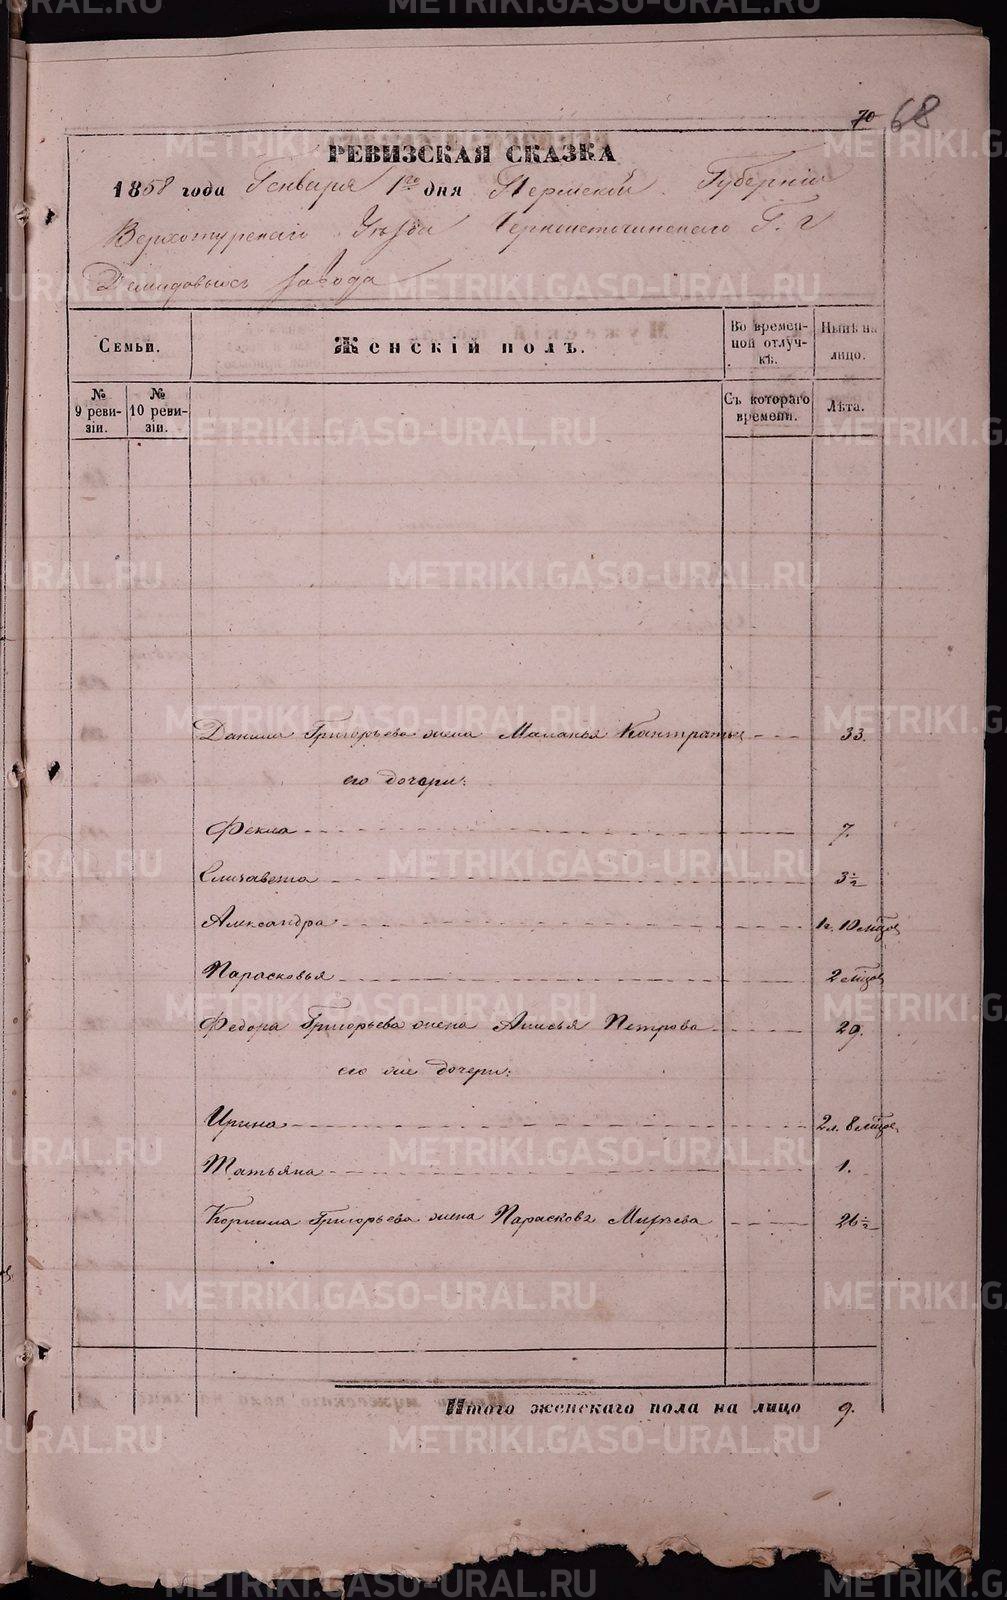 70 68
РЕВИЗСКАЯ СКАЗКА
1858 года Генваря 1го дня Пермской Губерніи
Верхотурскаго Уѣзда Черноисточинскаго Г. г
Демидовыхъ завода
Семьи.
Женскій полъ.
Во времен-
ной отлуч-
кѣ.
Нынѣ на
лицо.
№
9 реви-
зіи.
№
10 реви-
зіи.
Съ котораго
времени.
Лѣта.
Данила Григорьева жена Маланья Кантратье 33.
его дочери:
Фекла 7.
Елизавета 3½
Александра 1г. 10 мѣцов
Парасковья 2 мѣцов
Федора Григорьева жена Анисья Петрова 29.
его же дочери:
Ирина 2л. 8 мѣцов
Татьяна 1.
Корнила Григорьева жена Парасковa 26½
Итого женскаго пола на лицо 9.
METRIKI.GASO-URAL.RU